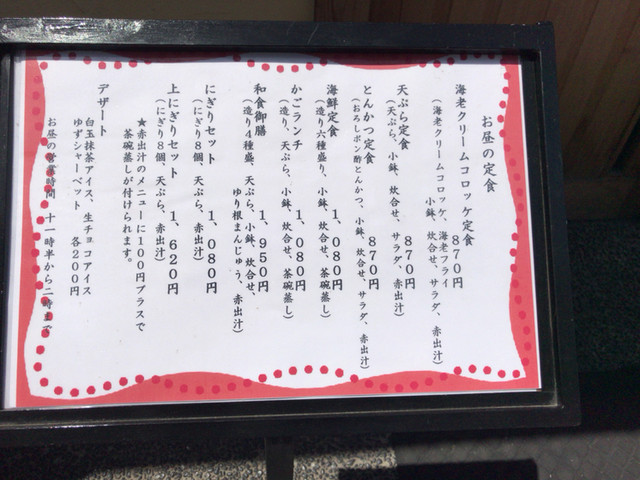 お昼の定食
海老クリームコロッケ定食 870円
(海老クリームコロッケ、海老フライ
小鉢、炊合せ、サラダ、赤出汁)
天ぷら定食 870円
(天ぷら、小鉢、炊合せ、サラダ、赤出汁)
とんかつ定食 870円
(おろしポン酢とんかつ、小鉢、炊合せ、サラダ、赤出汁)
海鮮定食 1,080円
(造り六種盛り、小鉢、炊合せ、茶碗蒸し)
かごランチ 1,080円
(造り、天ぷら、小鉢、炊合せ、茶碗蒸し)
和食御膳 1,950円
(造り4種盛、天ぷら、小鉢、炊合せ、
ゆり根まんじゅう、赤出汁)
にぎりセット 1,080円
(にぎり8個、天ぷら、赤出汁)
上にぎりセット 1,620円
(にぎり8個、天ぷら、赤出汁)
★赤出汁のメニューに100円プラスで
茶碗蒸しが付けられます。
デザート
白玉抹茶アイス、生チョコアイス
ゆずシャーベット 各200円
お昼の営業時間 十一時半から二時まで